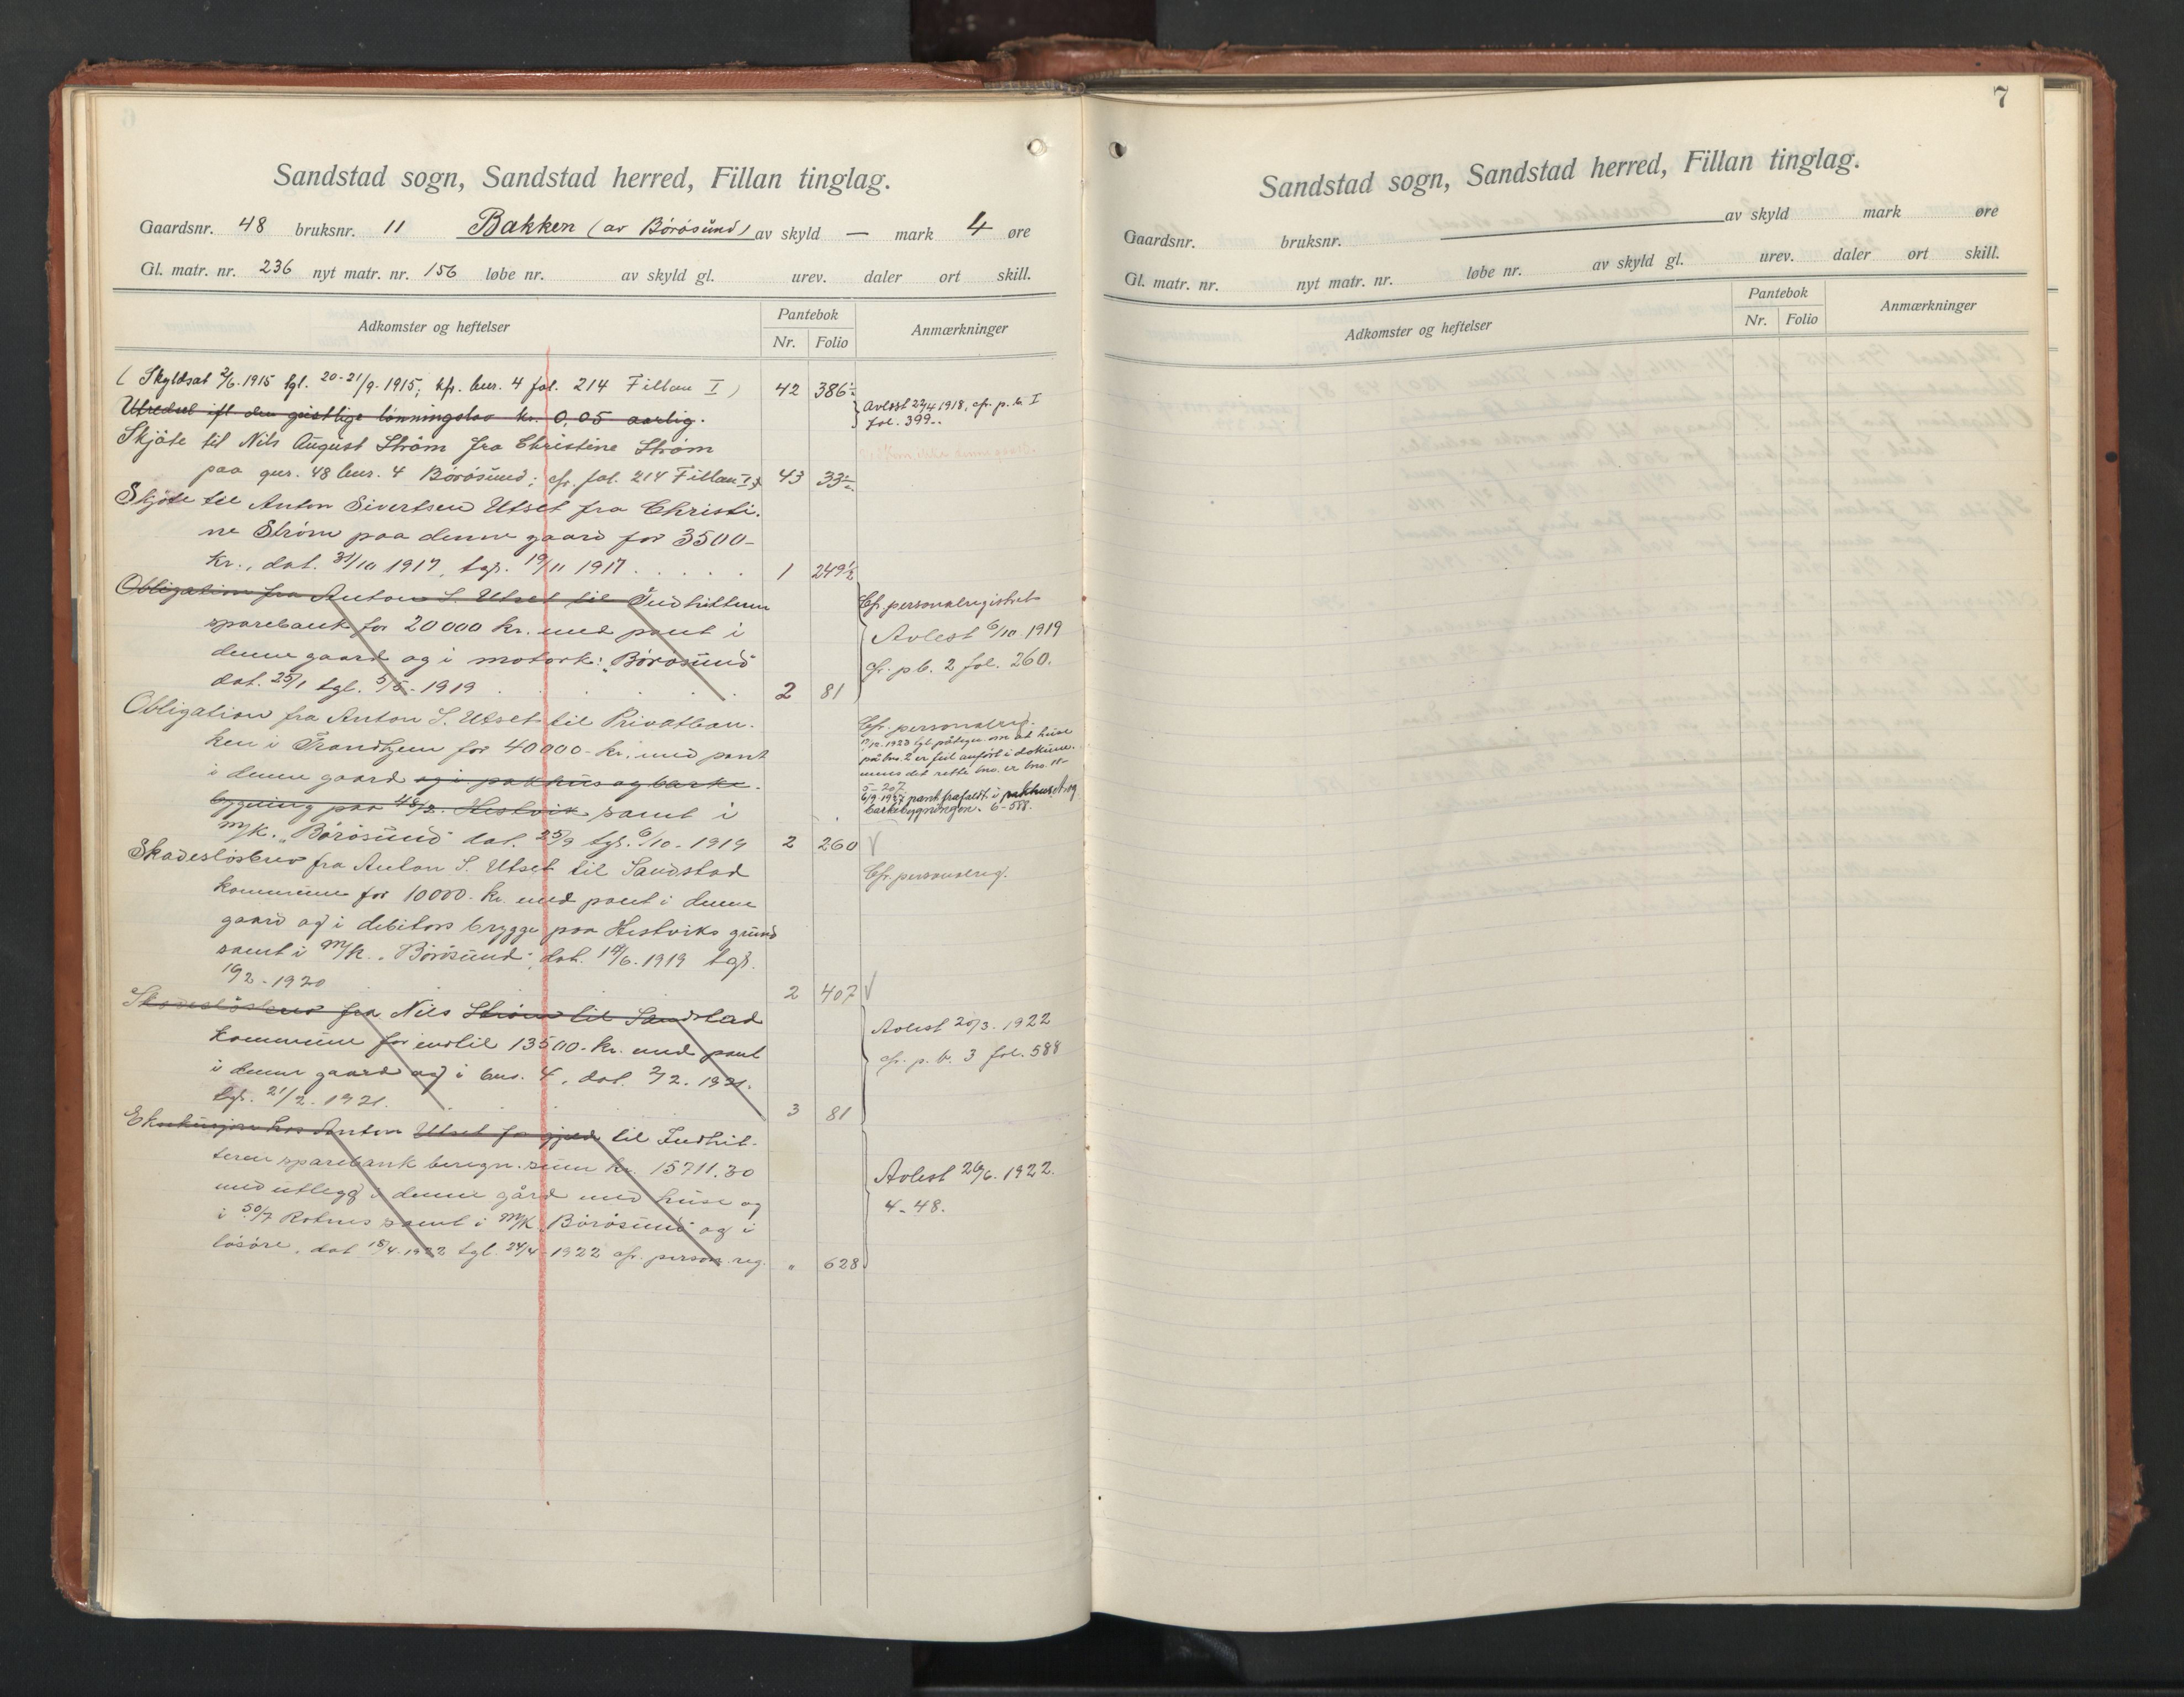 Sandstad sogn, Sandstad herred, Fillan tinglag.
Gaardsnr. 48 bruksnr. 11 Bakken (av Börösund) av skyld — mark 4 øre
Gl. matr. nr. 236 nyt matr. nr. 156 løbe nr. av skyld gl. urev. daler ort skill.
Adkomster og heftelser Pantebok Nr. Folio Anmærkninger
( Skyldsat 2/6.1915 tgl. 20-21/9.1915, kfr. bnr. 4 fol. 214 Fillan I ) 42 386½
Utredsel ifl den geistlige lönningslov kr. 0,05 aarlig. Avlöst 22/4 1918, cfr. p.b. I
fol. 399.
Skjöte til Nils August Ström fra Christine Ström
paa gnr. 48 bnr. 4 Börösund; cfr. fol. 214 Fillan I 43 33
Skjöte til Anton Sivertsen Utset fra Christi-
ne Ström paa denne gaard for 3500-
kr., dat. 31/10 1917, tgl. 19/11 1917. 1 249½
Obligation fra Anton S. Utset til Indhitteren
sparebank for 20000 kr. med pant i
denne gaard og i motork: "Börösund"
dat. 25/1 tgl. 5/5-1919 2 81
Cfr. personalregistret
Avlest 6/10 1919
cfr. p.b. 2 fol. 260.
Obligation fra Anton S. Utset til Privatban-
ken i Trondhjem for 40000- kr. med pant
i denne gaard og i pakhus og barke-
bygning paa 48/2. Hestvik samt i
m/k. "Börösund" dat. 25/9 tgl. 6/10-1919 2 260 V
Cfr. personalreg.
1923 tgl påtegn. om at huse
på bnr. 2 er feil anført i dokum-
mens det rette bno. er bno. 11-
5-207
6/9-1927 pant frafaldt i pakhus og
barkebygningen. 6-588.
Skadeslösbrev fra Anton S. Utset til Sandstad
kommune for 10000- kr. med pant i denne
gaard og i debitors brygge paa Hestviks grund
samt i m/k. "Börösund", dat. 14/6-1919 tgl.
16/2-1920 2 407 V
Cfr. personalreg.
Skadeslösbrev fra Nils Ström til Sandstad
kommune for indtil 13500- kr. med pant
i denne gaard og i bnr. 4, dat. 2/2.1921.
tgl. 21/2-1921. 3 81
Avlest 20/3.1922
cfr. p.b. 3 fol. 588
Ekskusjon hos Anton Utset for gjeld til Indhit-
teren sparebank beregn. sum kr. 15711.30
med utlegg i denne gård med huse og
i 50/7 Rotnes samt i m/k. "Börösund" og i
lösöre, dat 18/4.1922 tgl. 24/4-1922 cfr. person.reg. " 628
Avlest 26/6.1922.
4-48.
7
Sandstad sogn, Sandstad herred, Fillan tinglag.
Gaardsnr. bruksnr. av skyld mark øre
Gl. matr. nr. nyt matr. nr. løbe nr. av skyld gl. urev. daler ort skill.
Adkomster og heftelser Pantebok Nr. Folio Anmærkninger